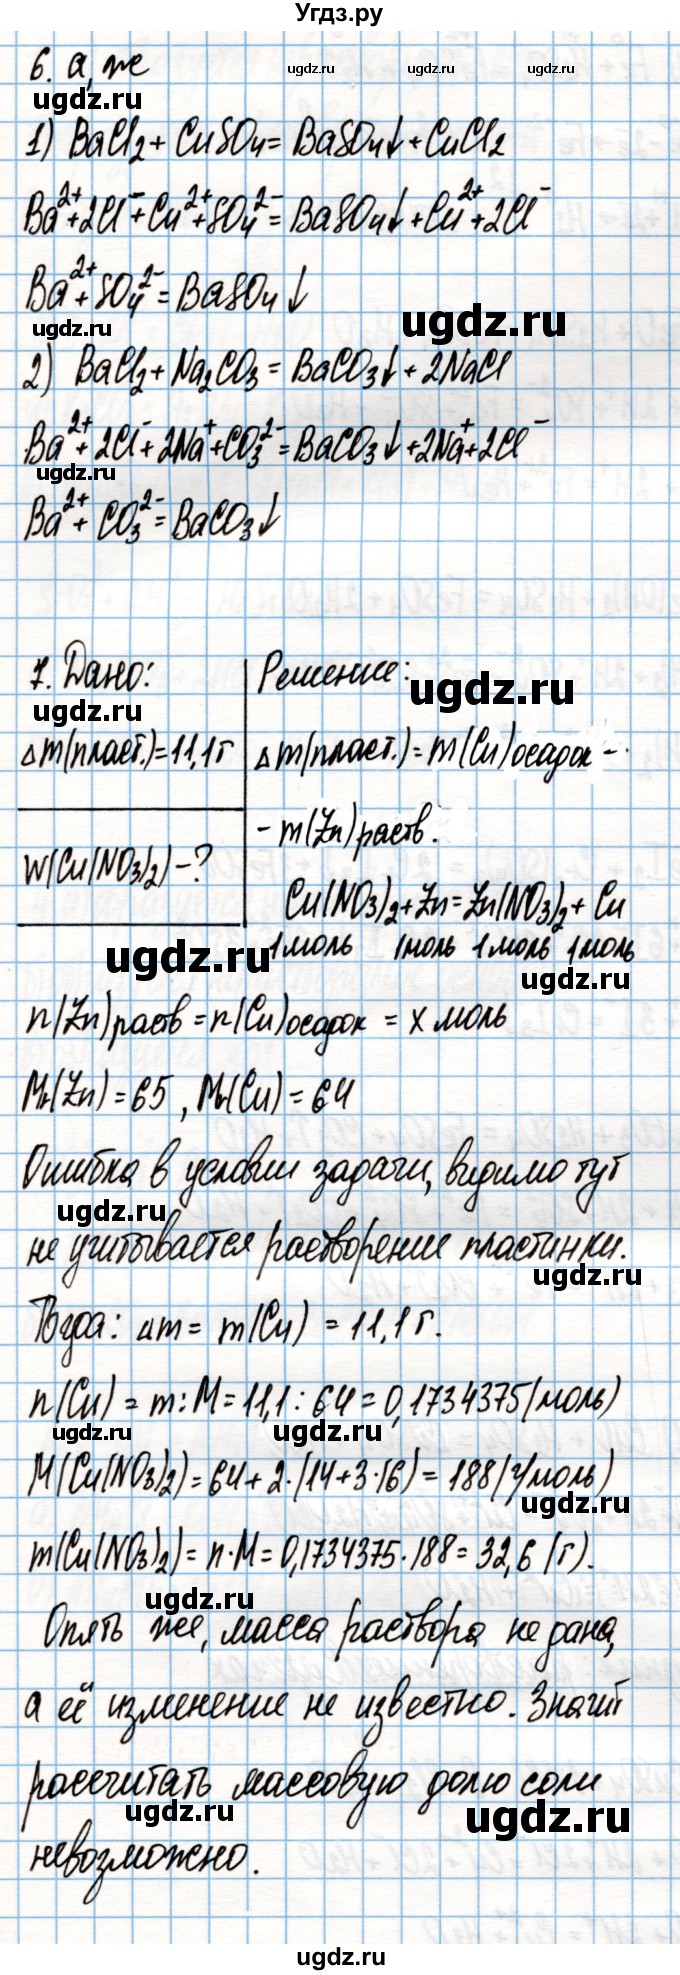 Угдз.ру
6. а, же
ugdz.ru ugdz.ru ugdz.ru ugdz.ru
1) BaCl₂ + CuSO₄ = BaSO₄↓ + CuCl₂
Ba²⁺ + 2Cl⁻ + Cu²⁺ + SO₄²⁻ = BaSO₄↓ + Cu²⁺ + 2Cl⁻
Ba²⁺ + SO₄²⁻ = BaSO₄↓
ugdz.ru ugdz.ru
2) BaCl₂ + Na₂CO₃ = BaCO₃↓ + 2NaCl
Ba²⁺ + 2Cl⁻ + 2Na⁺ + CO₃²⁻ = BaCO₃↓ + 2Na⁺ + 2Cl⁻
ugdz.ru
Ba²⁺ + CO₃²⁻ = BaCO₃↓
7. Дано: Решение:
ugdz.ru ugdz.ru
Δm(пласт.) = 11,1 г Δm(пласт.) = m(Cu)осадок -
- m(Zn)раств.
W(Cu(NO₃)₂) - ?
Cu(NO₃)₂ + Zn = Zn(NO₃)₂ + Cu
1 моль 1 моль 1 моль 1 моль
ugdz.ru ugdz.ru
n(Zn)раств = n(Cu)осадок = x моль
Mr(Zn) = 65, Mr(Cu) = 64
Ошибка в условии задачи, видимо тут
ugdz.ru
не учитывается растворение пластинки.
ugdz.ru
Тогда: Δm = m(Cu) = 11,1 г.
n(Cu) = m : M = 11,1 : 64 = 0,1734375 (моль)
ugdz.ru ugdz.ru
M(Cu(NO₃)₂) = 64 + 2·(14 + 3·16) = 188 (г/моль)
ugdz.ru
m(Cu(NO₃)₂) = n·M = 0,1734375·188 = 32,6 (г).
ugdz.ru
Опять же, масса раствора не дана,
а её изменение не известно. Значит
рассчитать массовую долю соли
ugdz.ru ugdz.ru
невозможно.
ugdz.ru